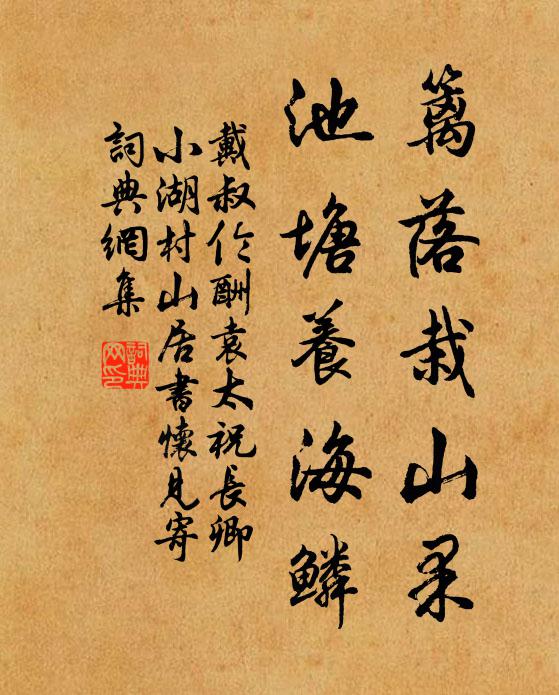 籬落栽山果
池塘養海鱗
戴叔伦酬袁太祝長卿
小湖村山居書懷見寄
詞典網集
詞典網印